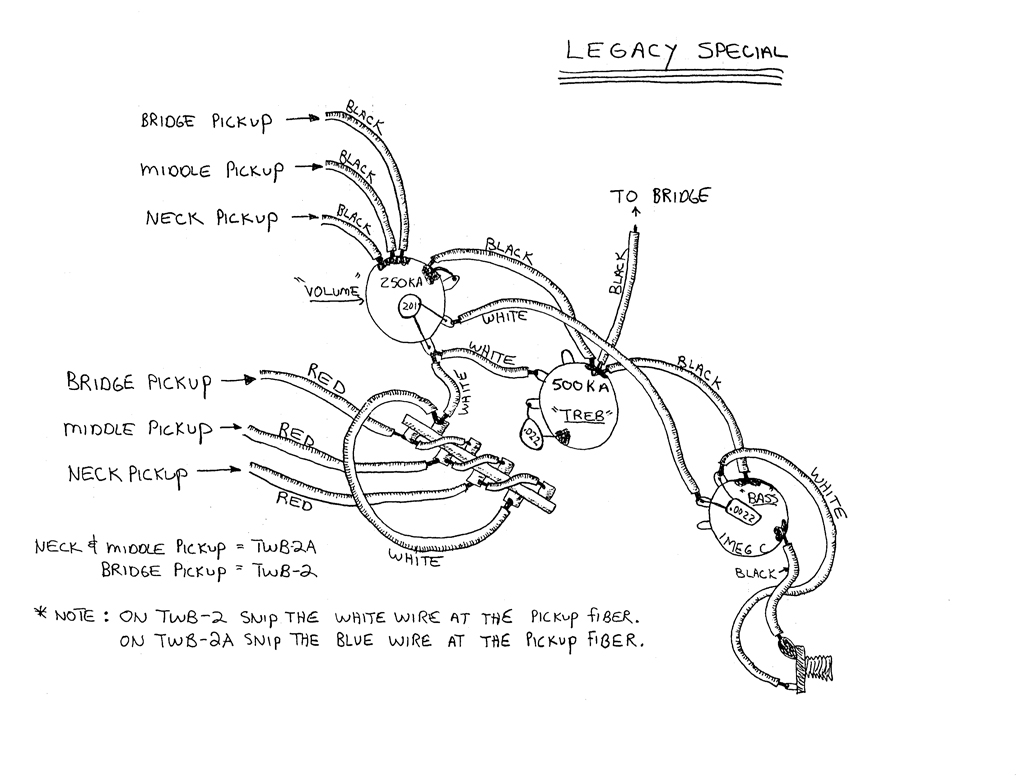 LEGACY SPECIAL
BRIDGE PICKUP
BLACK
MIDDLE PICKUP
BLACK
NECK PICKUP
BLACK
TO BRIDGE
BLACK
BLACK
"VOLUME"
250KA
201
WHITE
WHITE
WHITE
BLACK
500KA
"TREB"
.022
BRIDGE PICKUP
RED
MIDDLE PICKUP
RED
NECK PICKUP
RED
WHITE
WHITE
"BASS
.0022
1MEG C
BLACK
NECK & MIDDLE PICKUP = TWB-2A
BRIDGE PICKUP = TWB-2
* NOTE: ON TWB-2 SNIP THE WHITE WIRE AT THE PICKUP FIBER.
ON TWB-2A SNIP THE BLUE WIRE AT THE PICKUP FIBER.